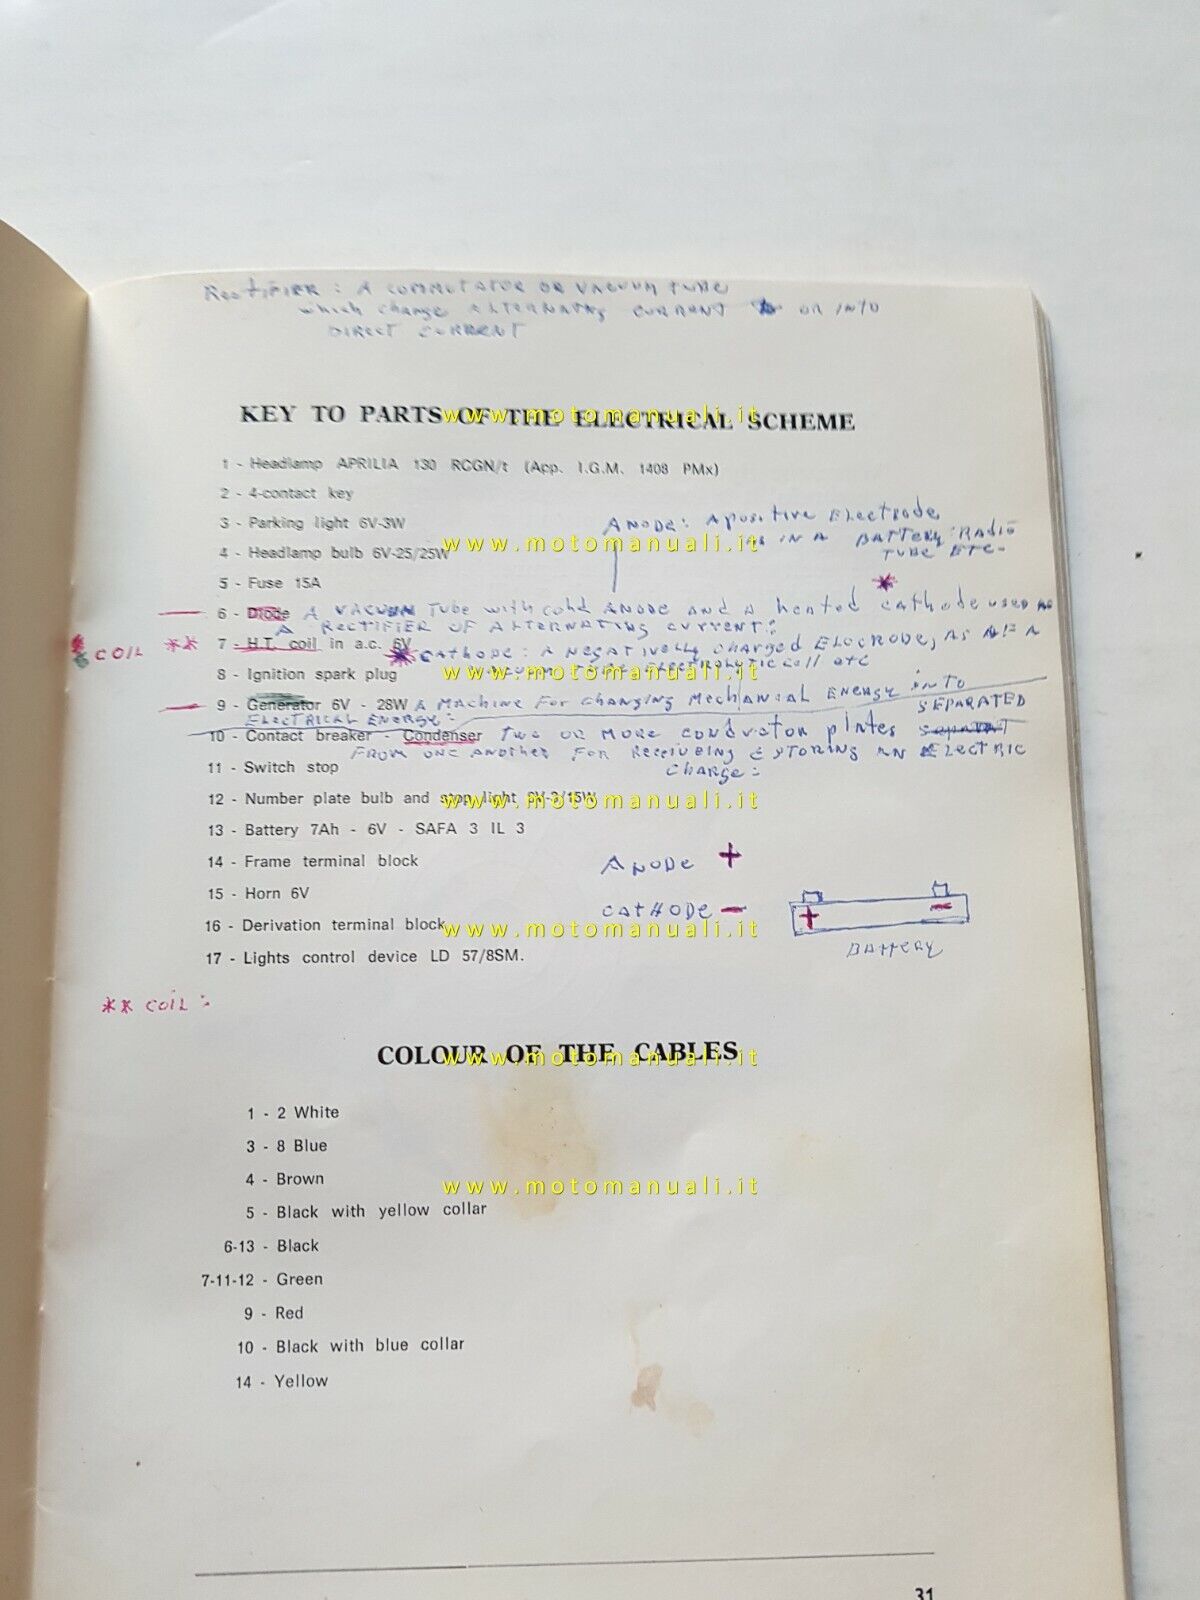 Rectifier : A COMMUTATOR OR VACUUM TUBE
which change ALTERNATING CURRENT OR INTO
DIRECT CURRENT
KEY TO PARTS OF THE ELECTRICAL SCHEME
www.motomanuali.it
1 - Headlamp APRILIA 130 RCGN/t (App. I.G.M. 1408 PMx)
2 - 4-contact key
3 - Parking light 6V-3W
ANODE: A positive Electrode
AS IN A BATTERY RADIO
TUBE ETC-
4 - Headlamp bulb 6V-25/25W
www.motomanuali.it
5 - Fuse 15A
6 - Diode A VACUUM TUBE with cold ANODE AND A heated cathode USED AS
A RECTIFIER OF ALTERNATING CURRENT:
COIL ** 7 - H.T. coil in a.c. 6V
*CATHODE: A NEGATIVELY charged ELECRODE, AS OF A
VACUUM TUBE ELECTROLYTIC CELL etc
8 - Ignition spark plug
www.motomanuali.it
9 - Generator 6V - 28W A MACHINE FOR CHANGING MECHANICAL ENERGY INTO
ELECTRICAL ENERGY:
SEPARATED
10 - Contact breaker - Condenser TWO OR MORE CONDUCTOR PLATES
FROM ONE ANOTHER FOR RECEIVING & STORING AN ELECTRIC
CHARGE:
11 - Switch stop
12 - Number plate bulb and stop light 6V-3/15W
www.motomanuali.it
13 - Battery 7Ah - 6V - SAFA 3 IL 3
14 - Frame terminal block
ANODE +
15 - Horn 6V
CATHODE -
+ -
BATTERY
16 - Derivation terminal block
www.motomanuali.it
17 - Lights control device LD 57/8SM.
** COIL :
COLOUR OF THE CABLES
www.motomanuali.it
1 - 2 White
3 - 8 Blue
4 - Brown
www.motomanuali.it
5 - Black with yellow collar
6-13 - Black
7-11-12 - Green
9 - Red
10 - Black with blue collar
14 - Yellow
31